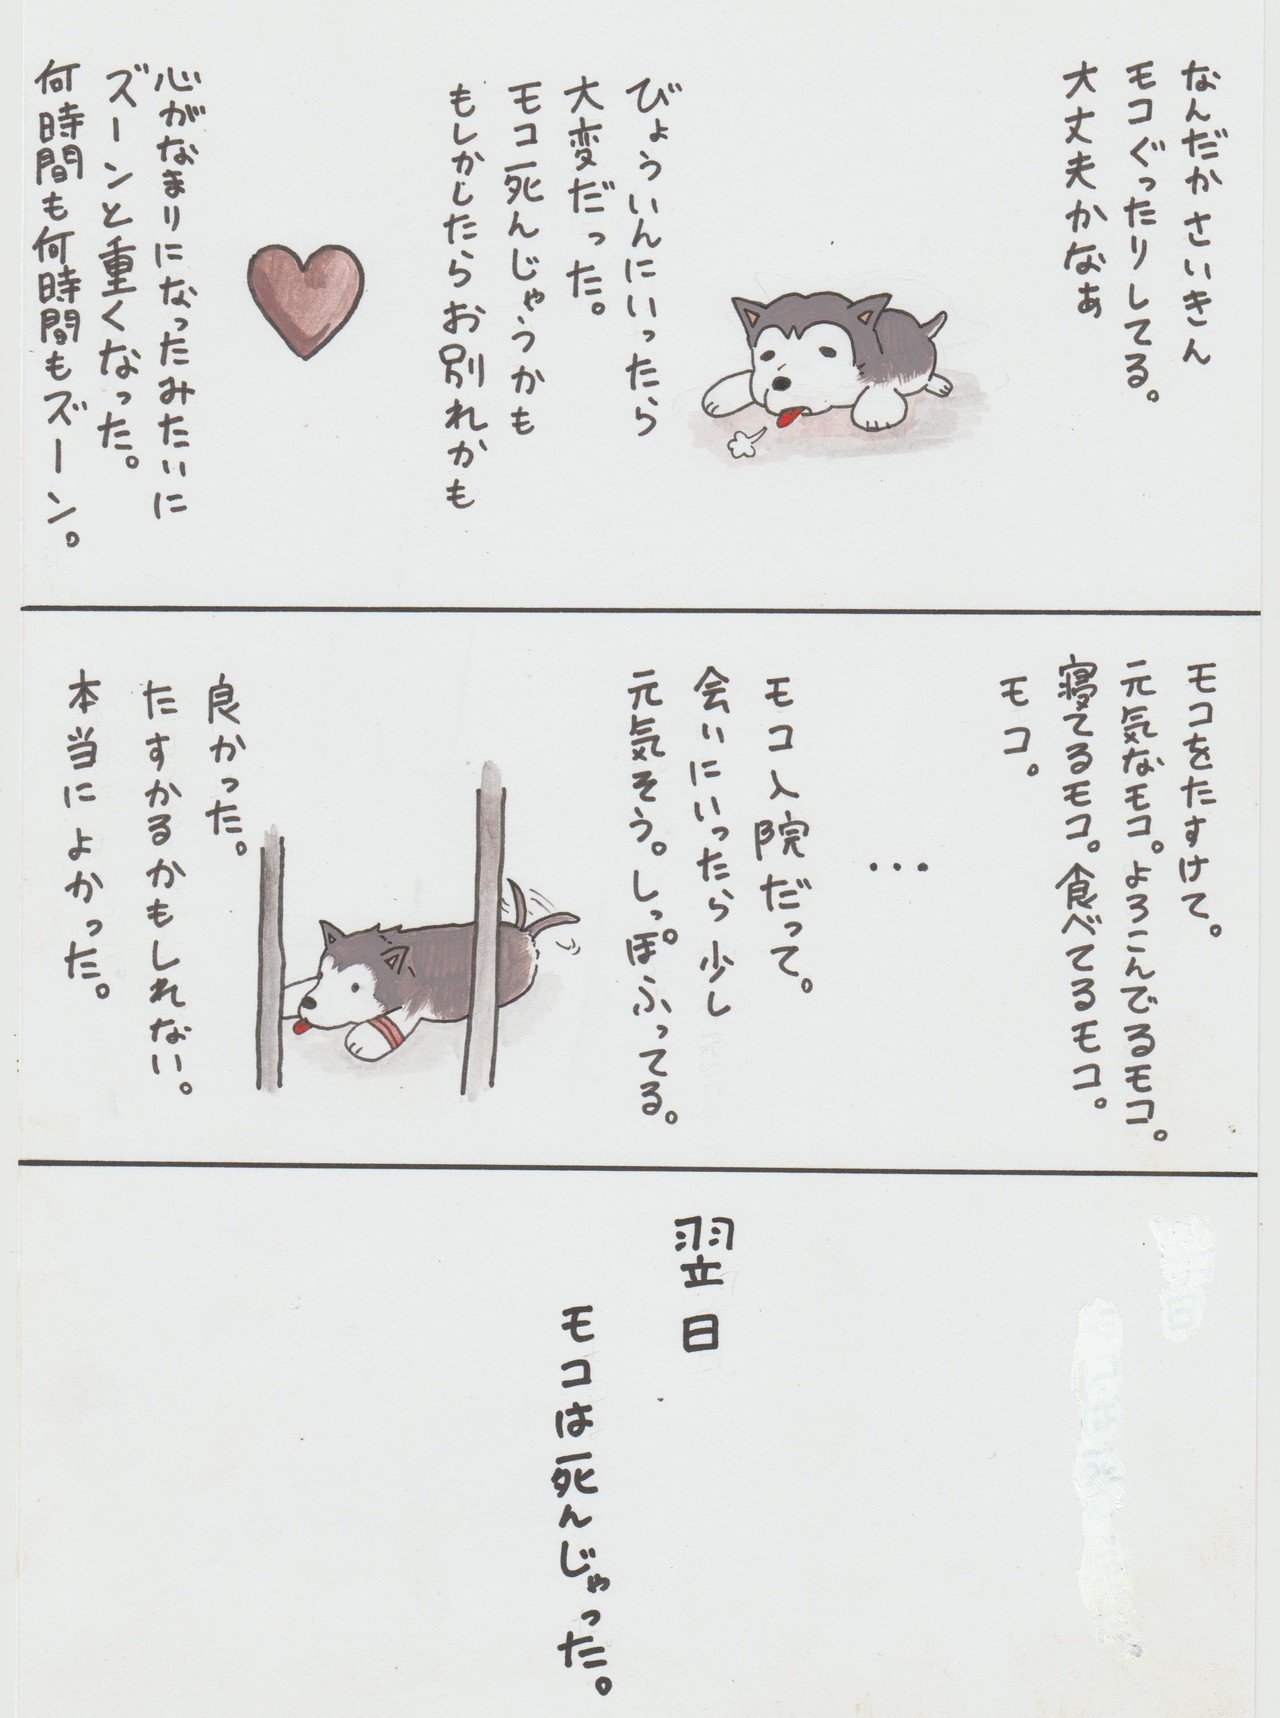 なんだかさいきん
モコぐったりしてる。
大丈夫かなぁ
びょういんにいったら
大変だった。
モコ死んじゃうかも
もしかしたらお別れかも
心がなまりになったみたいに
ズーンと重くなった。
何時間も何時間もズーン。
モコをたすけて。
元気なモコ。よろこんでるモコ。
寝てるモコ。食べてるモコ。
モコ。
…
モコ入院だって。
会いにいったら少し
元気そう。しっぽふってる。
良かった。
たすかるかもしれない。
本当によかった。
翌日
モコは死んじゃった。